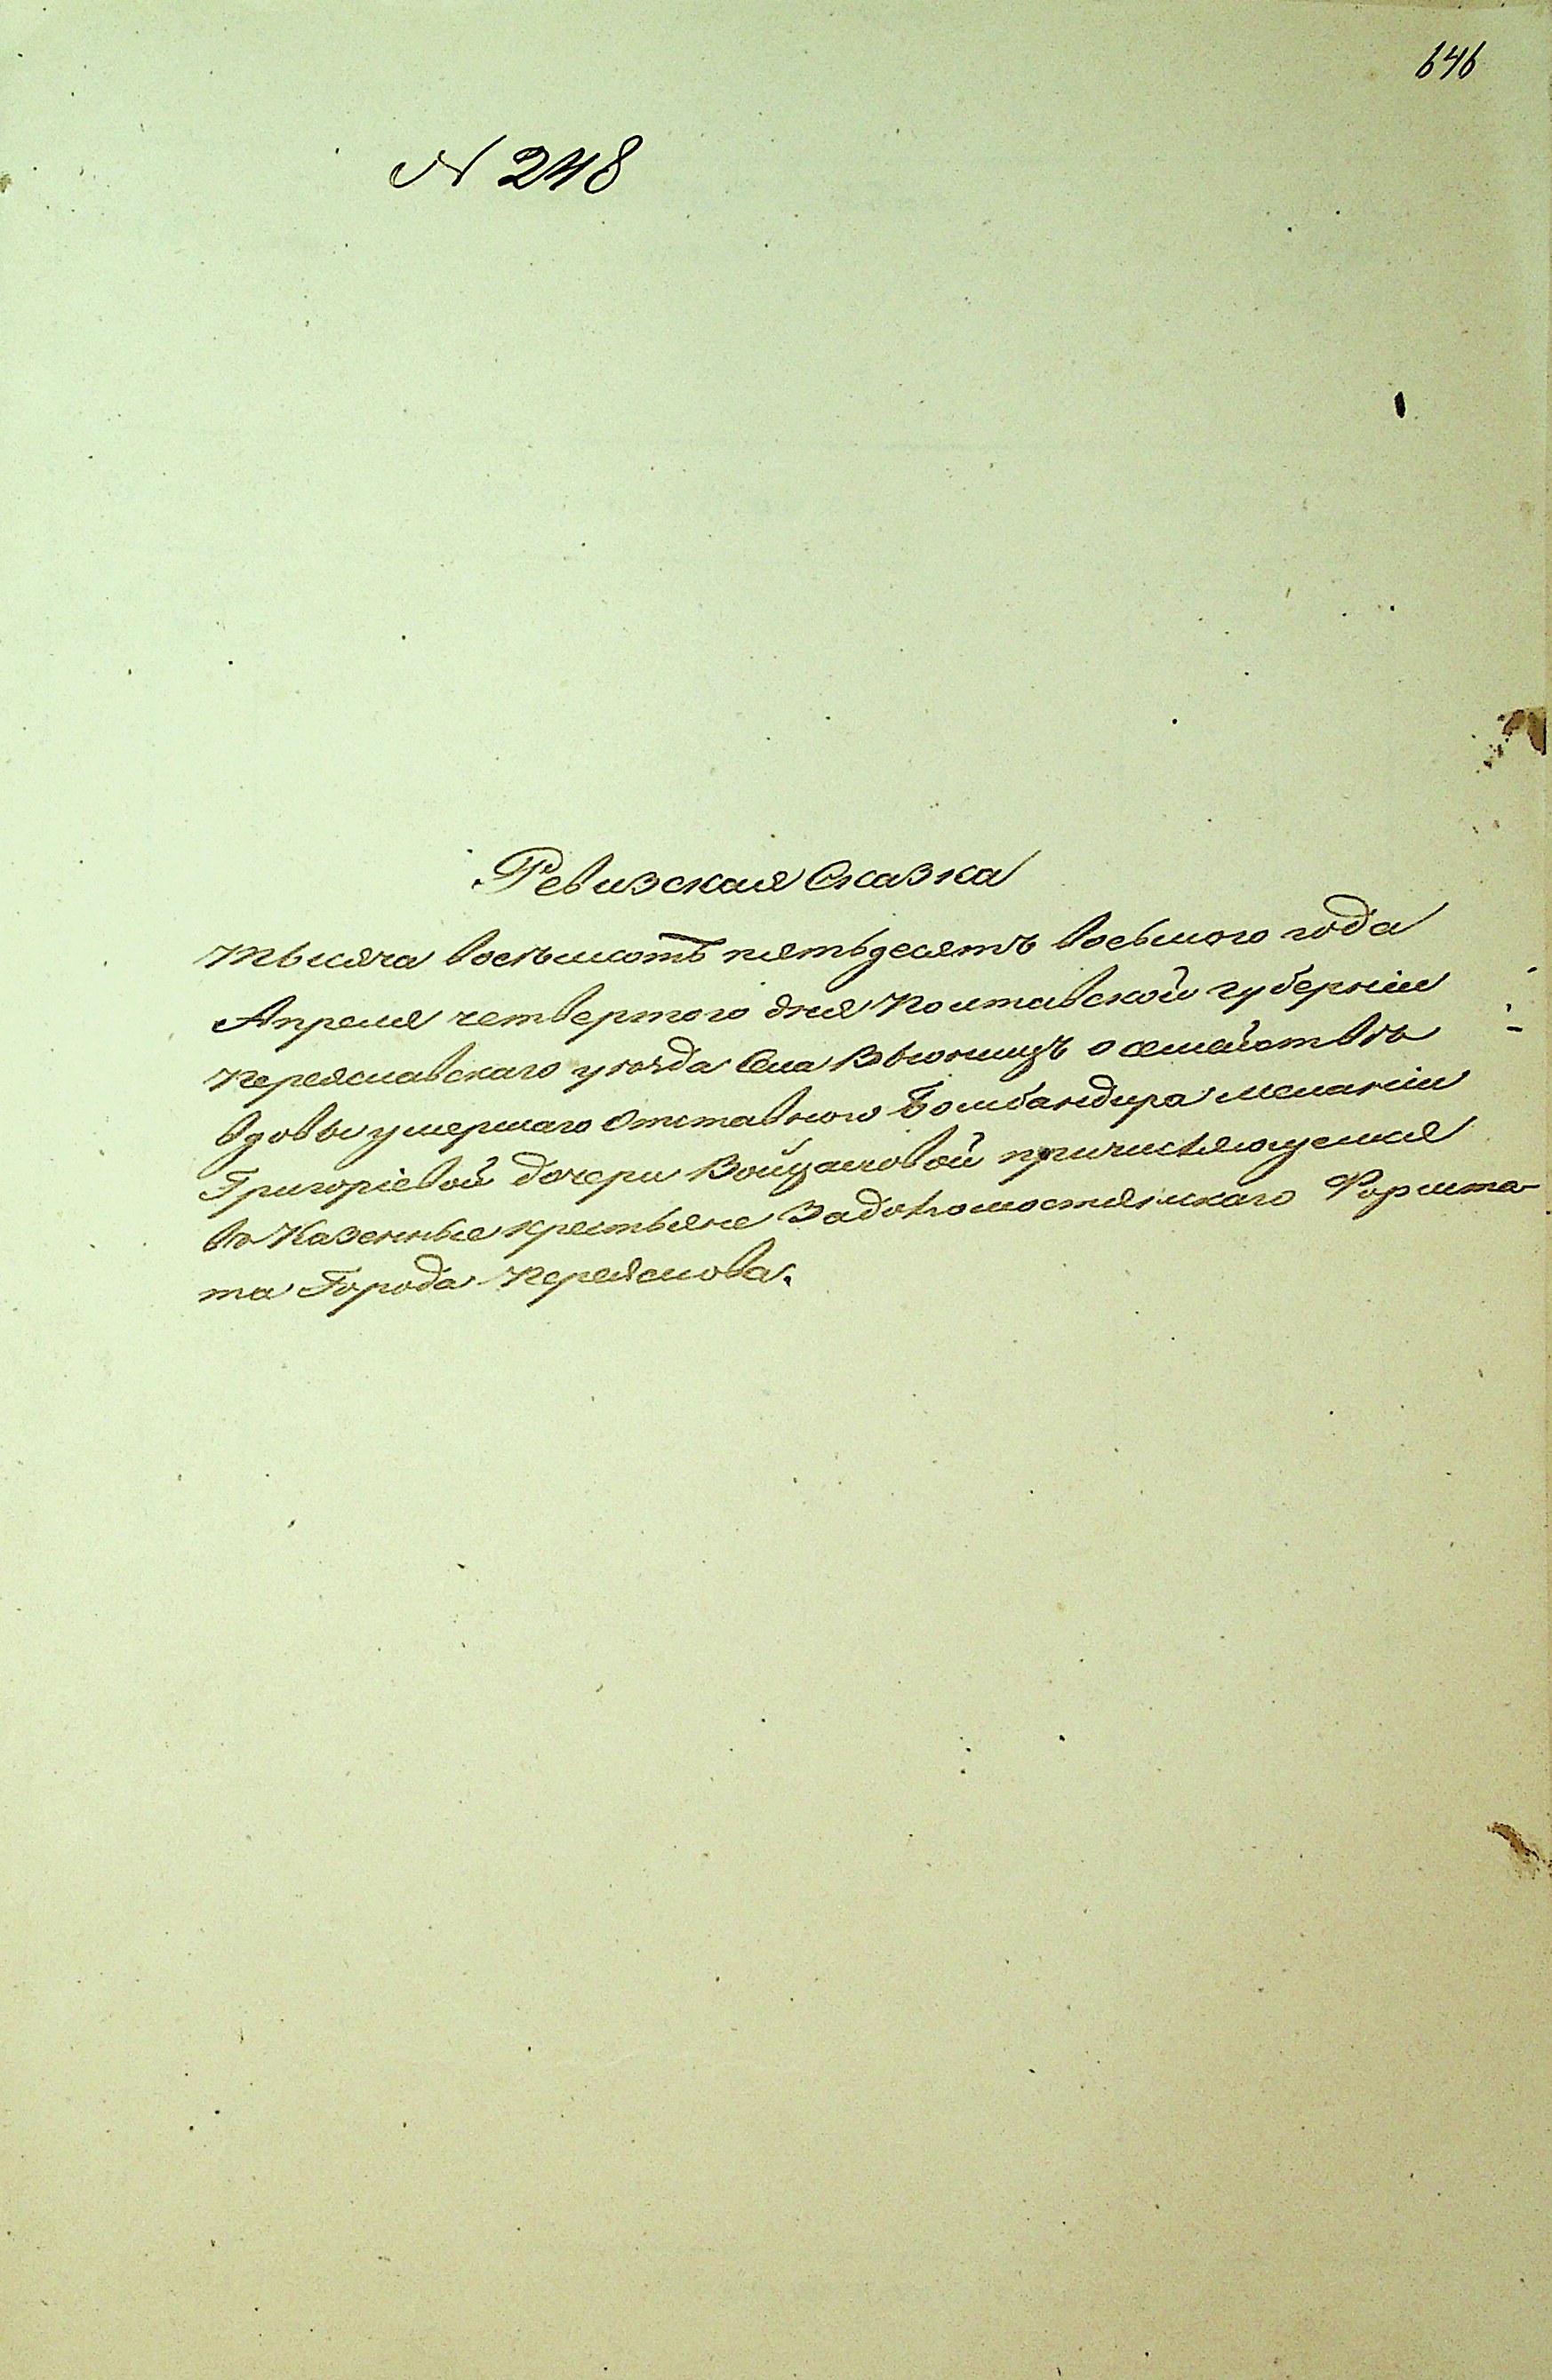 646
№ 248
Ревизская Сказка
Тысяча восемьсотъ пятьдесятъ восьмого года
Апреля четвертого дня Полтавской губерніи
Переяславскаго уезда Села Вьюницъ о семействѣ
вдовы умершаго Отставного Бомбандира Меланіи
Григоріевой дочери причисляющемся
въ Казенные крестьяне Форшта-
та Города Переяслова.